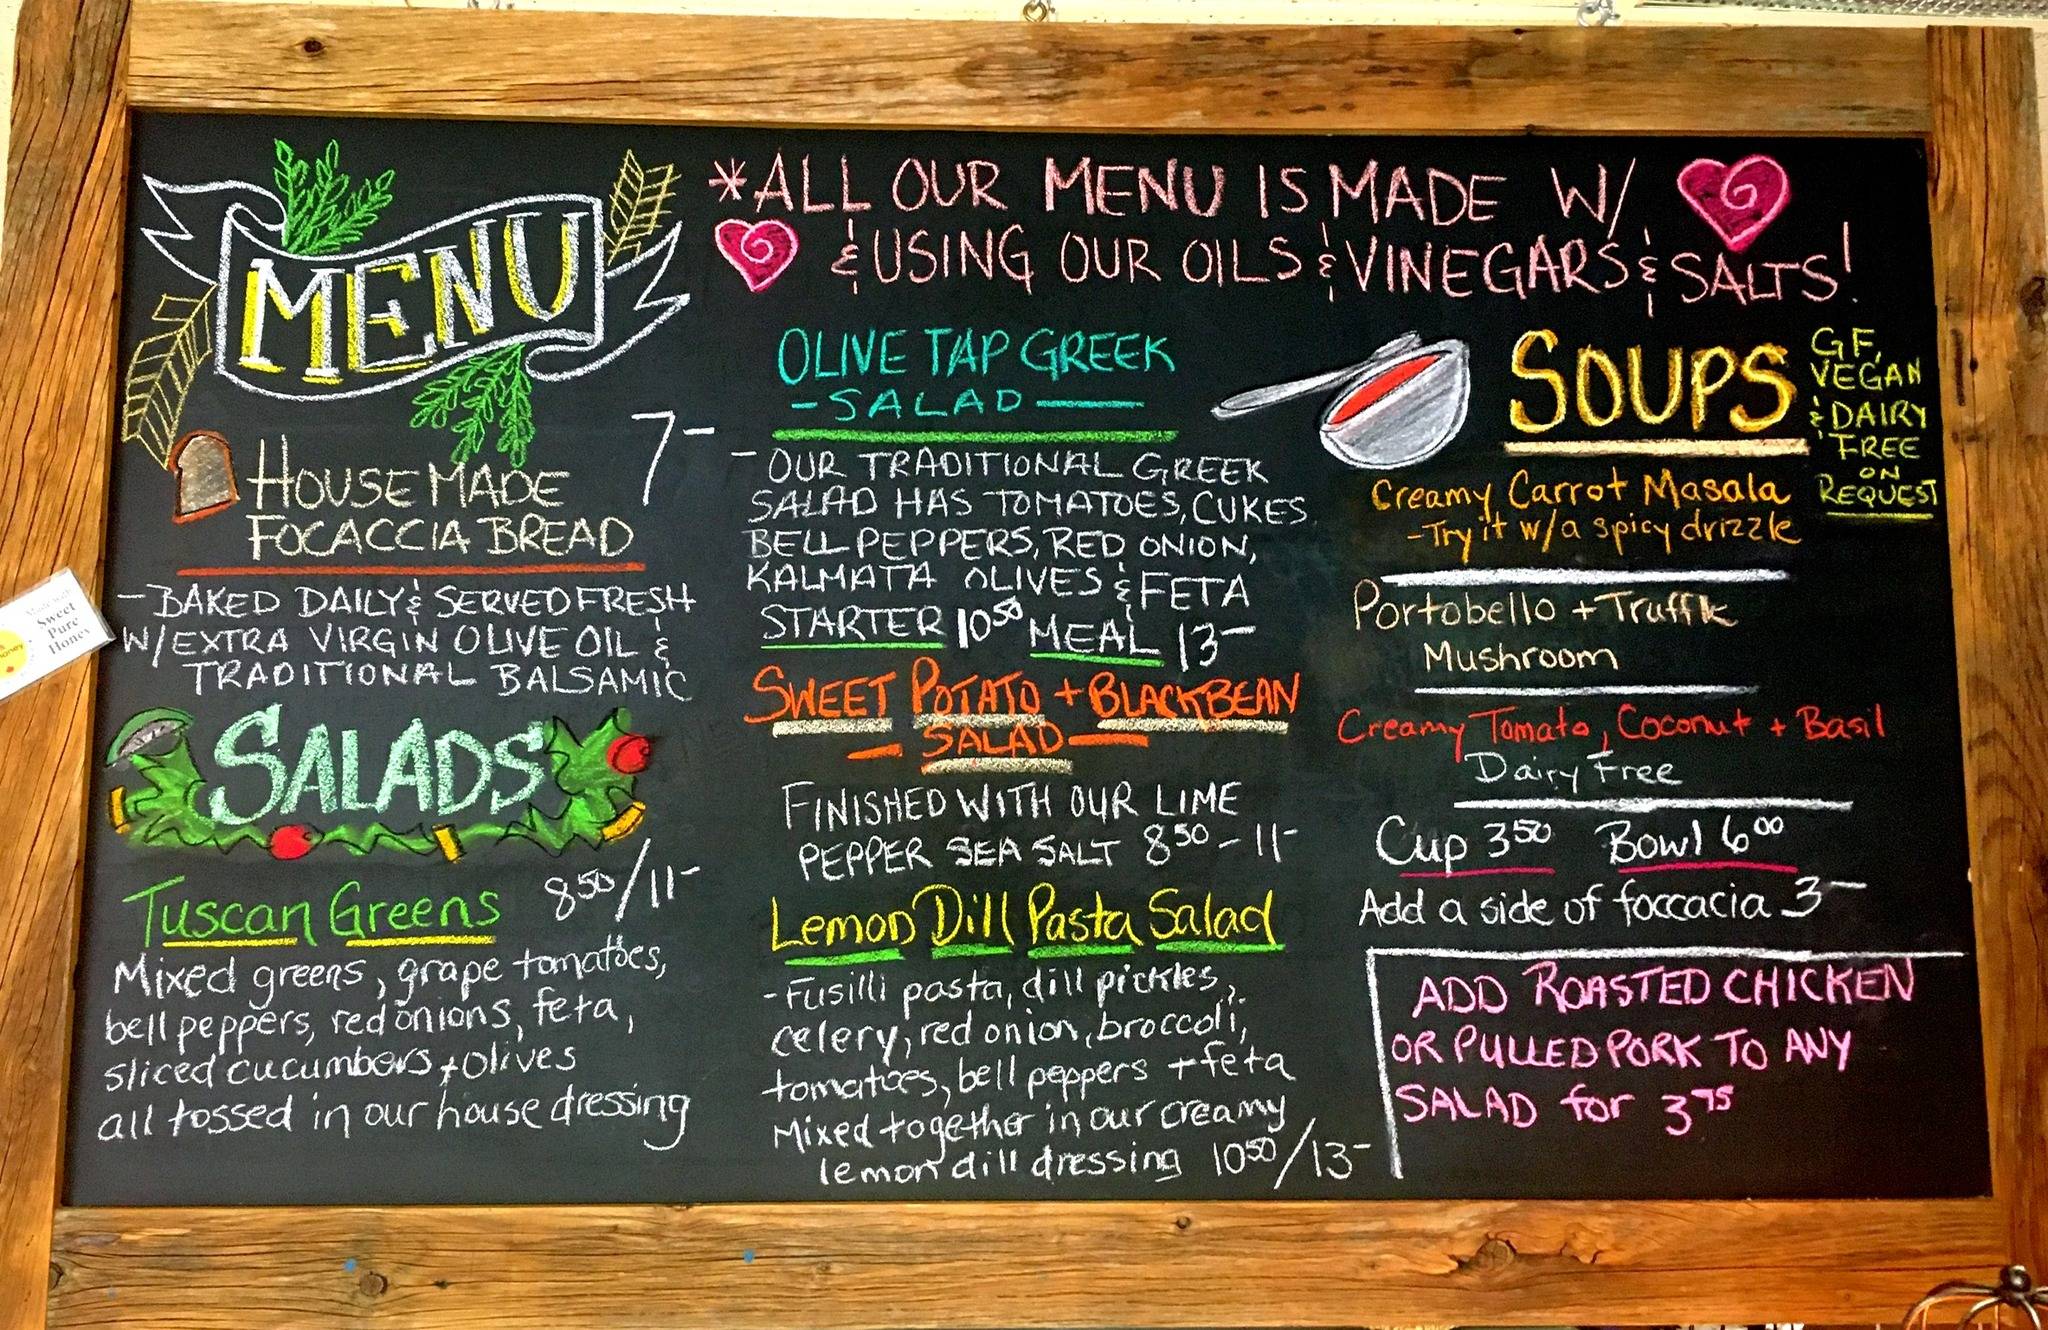 MENU
*ALL OUR MENU IS MADE W/
& USING OUR OILS & VINEGARS & SALTS!
HOUSEMADE 7-
FOCACCIA BREAD
-BAKED DAILY & SERVED FRESH
W/EXTRA VIRGIN OLIVE OIL &
TRADITIONAL BALSAMIC
SALADS
Tuscan Greens 8 50/11-
Mixed greens, grape tomatoes,
bell peppers, red onions, feta,
sliced cucumbers + olives
all tossed in our house dressing
OLIVE TAP GREEK
-SALAD-
- OUR TRADITIONAL GREEK
SALAD HAS TOMATOES, CUKES
BELL PEPPERS, RED ONION,
KALMATA OLIVES & FETA
STARTER 10 50 MEAL 13-
SWEET POTATO + BLACKBEAN
- SALAD -
FINISHED WITH OUR LIME
PEPPER SEA SALT 8 50 - 11-
Lemon Dill Pasta Salad
-Fusilli pasta, dill pickles,
celery, red onion, broccoli,
tomatoes, bell peppers + feta
Mixed together in our creamy
lemon dill dressing 10 50/13-
SOUPS
GF,
VEGAN
& DAIRY
FREE
ON
REQUEST
Creamy Carrot Masala
-Try it w/a spicy drizzle
Portobello + Truffle
Mushroom
Creamy Tomato, Coconut + Basil
Dairy Free
Cup 3 50 Bowl 6 00
Add a side of foccacia 3-
ADD ROASTED CHICKEN
OR PULLED PORK TO ANY
SALAD for 3 75
Sweet
Pure
Honey